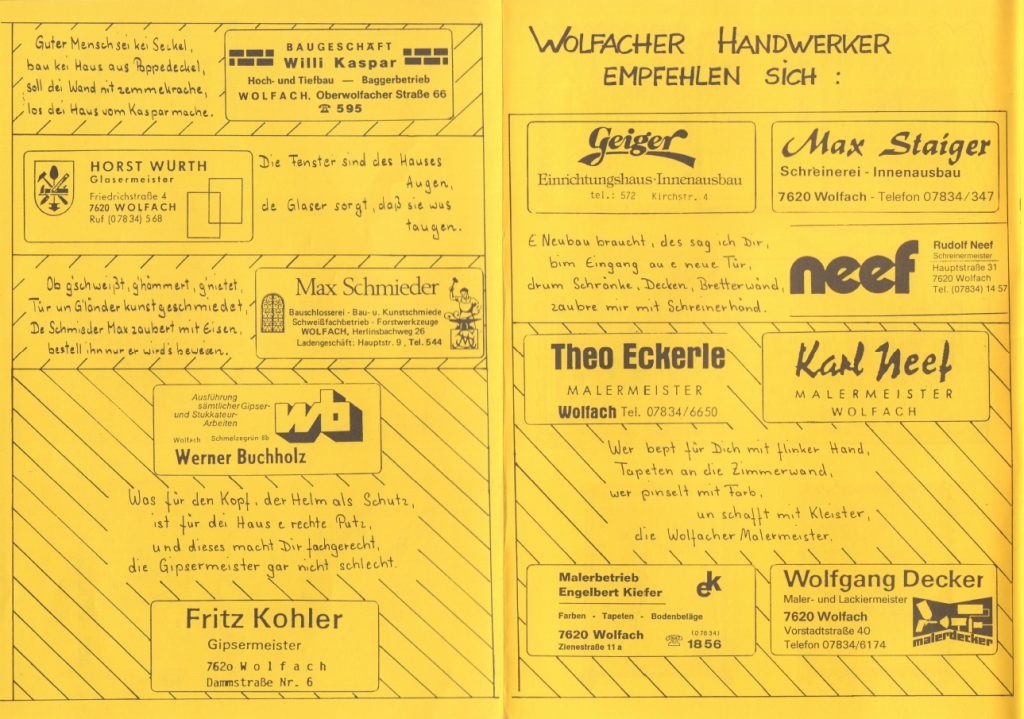 Guter Mensch sei kei Seckel,
bau kei Haus aus Pappedeckel,
soll dei Wand nit zemmekrache,
los dei Haus vom Kaspar mache.
BAUGESCHÄFT
Willi Kaspar
Hoch- und Tiefbau — Baggerbetrieb
WOLFACH, Oberwolfacher Straße 66
☎ 595
HORST WURTH
Glasermeister
Friedrichstraße 4
7620 WOLFACH
Ruf (07834) 568
Die Fenster sind des Hauses
Augen,
de Glaser sorgt, daß sie wus
taugen.
Ob g'schweißt, g'hämmert, g'nietet,
Tür un G'länder kunstgeschmiedet,
De Schmieder Max zaubert mit Eisen,
bestell ihn nur er wird's beweisen.
Max Schmieder
Bauschlosserei · Bau- u. Kunstschmiede
Schweißfachbetrieb · Forstwerkzeuge
WOLFACH, Herlinsbachweg 26
Ladengeschäft: Hauptstr. 9, Tel. 544
Ausführung
sämtlicher Gipser-
und Stukkateur-
Arbeiten
wb
Wolfach Schmelzegrün 8b
Werner Buchholz
Was für den Kopf, der Helm als Schutz,
ist für dei Haus e rechte Putz,
und dieses macht Dir fachgerecht,
die Gipsermeister gar nicht schlecht.
Fritz Kohler
Gipsermeister
762o Wolfach
Dammstraße Nr. 6
WOLFACHER HANDWERKER
EMPFEHLEN SICH :
Geiger
Einrichtungshaus · Innenausbau
tel.: 572 Kirchstr. 4
Max Staiger
Schreinerei - Innenausbau
7620 Wolfach - Telefon 07834/347
E Neubau braucht, des sag ich Dir,
bim Eingang au e neue Tür,
drum Schränke, Decken, Bretterwänd,
zaubre mir mit Schreinerhänd.
neef
Rudolf Neef
Schreinermeister
Hauptstraße 31
7620 Wolfach
Tel. (07834) 1457
Theo Eckerle
MALERMEISTER
Wolfach Tel. 07834/6650
Karl Neef
MALERMEISTER
WOLFACH
Wer bept für Dich mit flinker Hand,
Tapeten an die Zimmerwand,
wer pinselt mit Farb,
un schafft mit Kleister,
die Wolfacher Malermeister.
Malerbetrieb
Engelbert Kiefer
ek
Farben - Tapeten - Bodenbeläge
7620 Wolfach
Zienestraße 11 a
(07834)
☎ 1856
Wolfgang Decker
Maler- und Lackiermeister
7620 Wolfach
Vorstadtstraße 40
Telefon 07834/6174
malerdecker